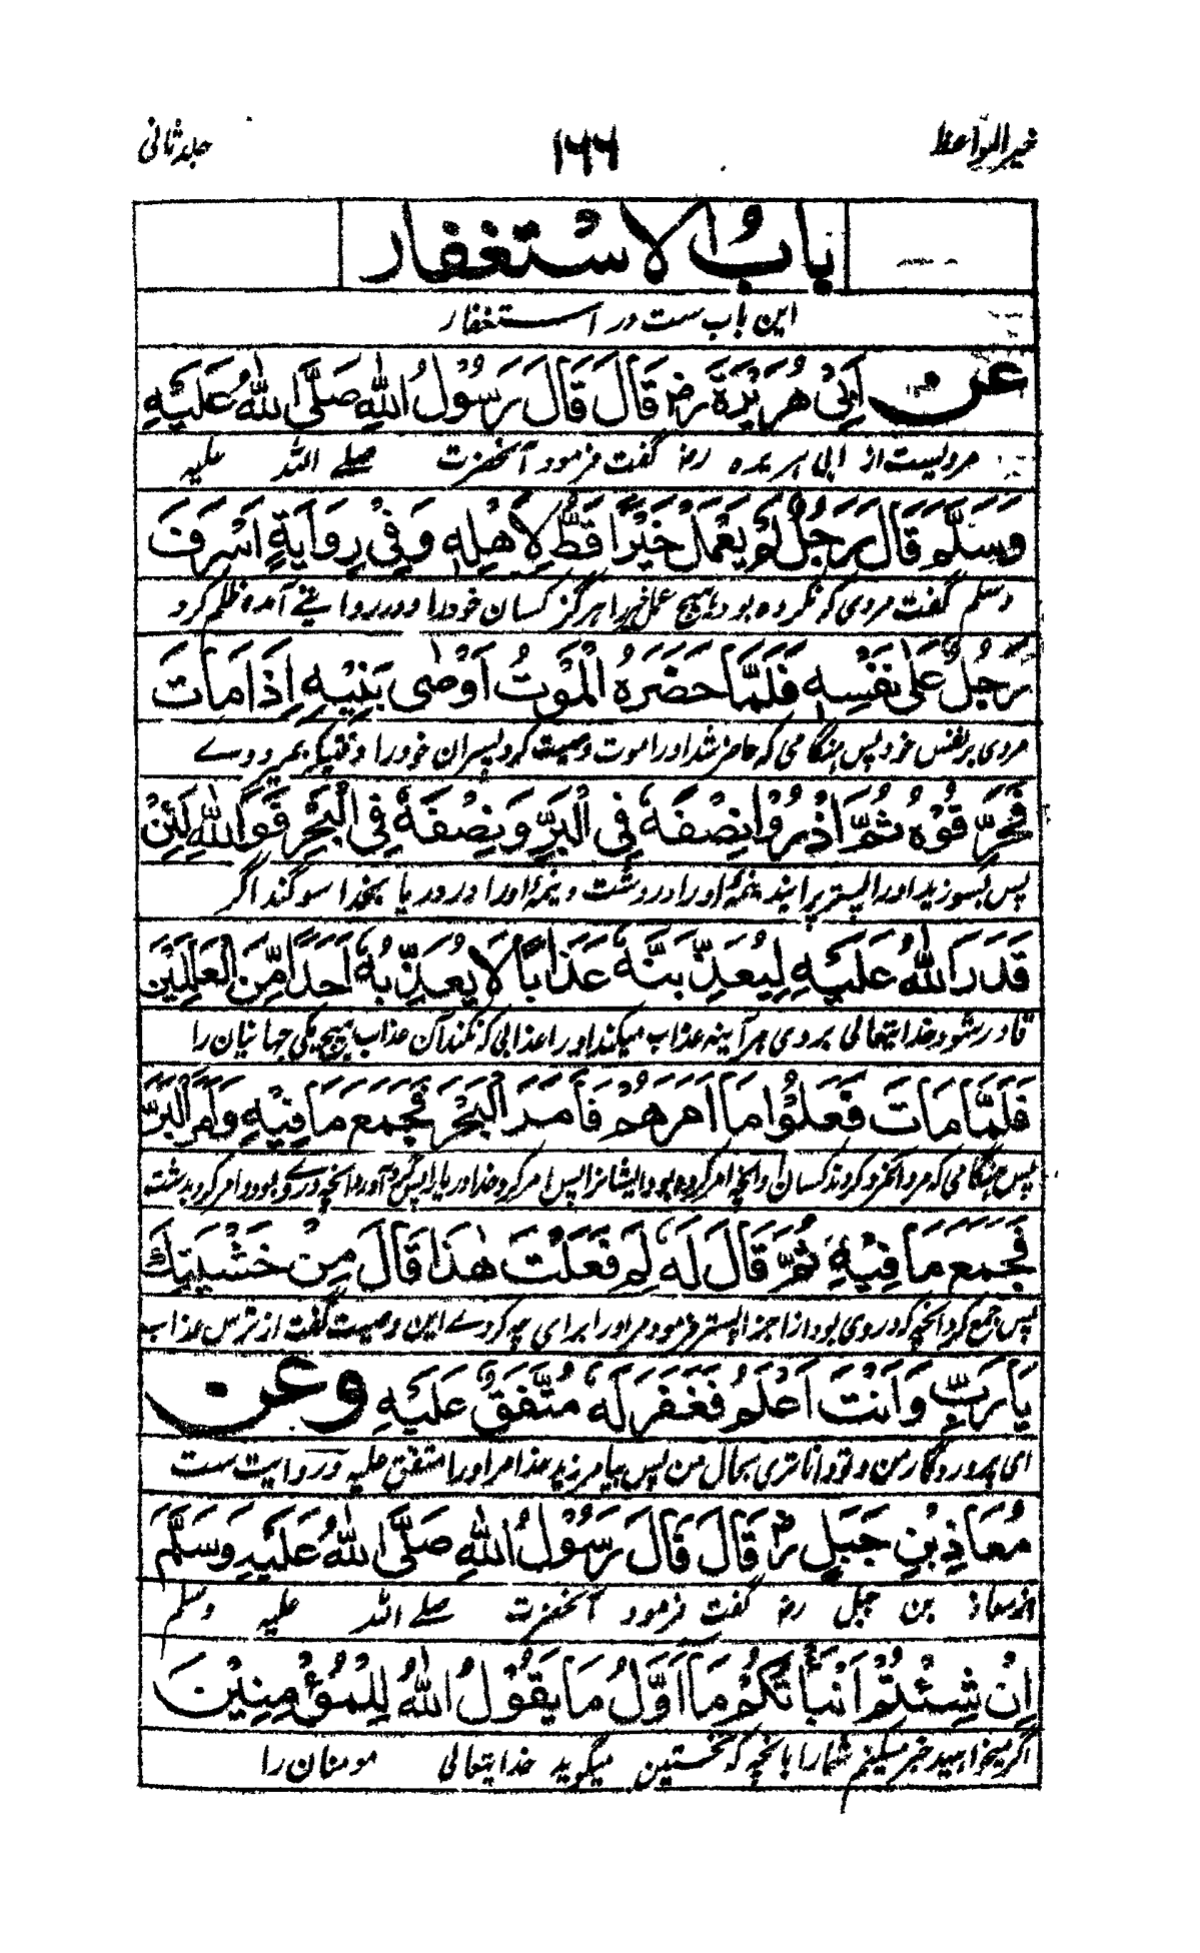 خیر المواعظ ۱۶۶ جلد ثانی
بَابُ الْاِسْتغفار
این باب ست در استغفار
عن اَبِیْ هُرَیْرَةَ رض قَالَ قَالَ رَسُوْلُ اللّٰهِ صَلَّی اللّٰهُ عَلَیْهِ
مرویست از ابی هریره رض گفت فرمود آنحضرت صلے اللہ علیہ
وَسَلَّمَ قَالَ رَجُلٌ لَمْ یَعْمَلْ خَیْرًا قَطُّ لِاَهْلِهٖ وَفِیْ رِوَایَةٍ اَسْرَفَ
وسلم گفت مردی که نکرده بود هیچ عمل خیر را هرگز کسان خود را و در روایتے آمده ظلم کرد
رَجُلٌ عَلٰی نَفْسِهٖ فَلَمَّا حَضَرَهُ الْمَوْتُ اَوْصٰی بَنِیْهِ اِذَا مَاتَ
مردی بر نفس خود پس هنگامی که حاضر شد او را موت وصیت کرد پسران خود را وقتیکه بمیرد وے
فَحَرِّقُوْهُ ثُمَّ اذْرُوْا نِصْفَهٗ فِی الْبَرِّ وَنِصْفَهٗ فِی الْبَحْرِ فَوَاللّٰهِ لَئِنْ
پس بسوزید او را پستر پرانید نیمهٔ او را در دشت و نیمهٔ او را در دریا بخدا سوگند اگر
قَدَرَ اللّٰهُ عَلَیْهِ لَیُعَذِّبَنَّهٗ عَذَابًا لَا یُعَذِّبُهٗ اَحَدًا مِّنَ الْعٰلَمِیْنَ
قادر شود خدایتعالی بر وی هر آینه عذاب میکند او را عذابی که نکند آن عذاب هیچ یکی جهانیان را
فَلَمَّا مَاتَ فَعَلُوْا مَا اَمَرَهُمْ فَاَمَرَ الْبَحْرَ فَجَمَعَ مَا فِیْهِ وَاَمَرَ الْبَرَّ
پس هنگامی که مرد آنمرد کردند کسان او آنچه امر کرده بود ایشانرا پس امر کرد خدا دریا را پس گرد آورد آنچه در وے بود و امر کرد بدشت
فَجَمَعَ مَا فِیْهِ ثُمَّ قَالَ لَهٗ لِمَ فَعَلْتَ هٰذَا قَالَ مِنْ خَشْیَتِكَ
پس جمع کرد آنچه که در وی بود از اجزا پستر فرمود مر او را برای چه کردے این وصیت گفت از ترس عذاب
یَا رَبِّ وَاَنْتَ اَعْلَمُ فَغَفَرَ لَهٗ مُتَّفَقٌ عَلَیْهِ وعن
ای پروردگار من و تو داناتری بحال من پس بیامرزید خدا مر او را متفق علیه و روایت ست
مُعَاذِ بْنِ جَبَلٍ رض قَالَ قَالَ رَسُوْلُ اللّٰهِ صَلَّی اللّٰهُ عَلَیْهِ وَسَلَّمَ
از معاذ بن جبل رض گفت فرمود آنحضرت صلے اللہ علیه وسلم
اِنْ شِئْتُمْ اَنْبَأْتُكُمْ مَا اَوَّلُ مَا یَقُوْلُ اللّٰهُ لِلْمُؤْمِنِیْنَ
اگر میخواهید خبر میکنم شما را بآنچه که نخستین میگوید خدایتعالی مومنان را